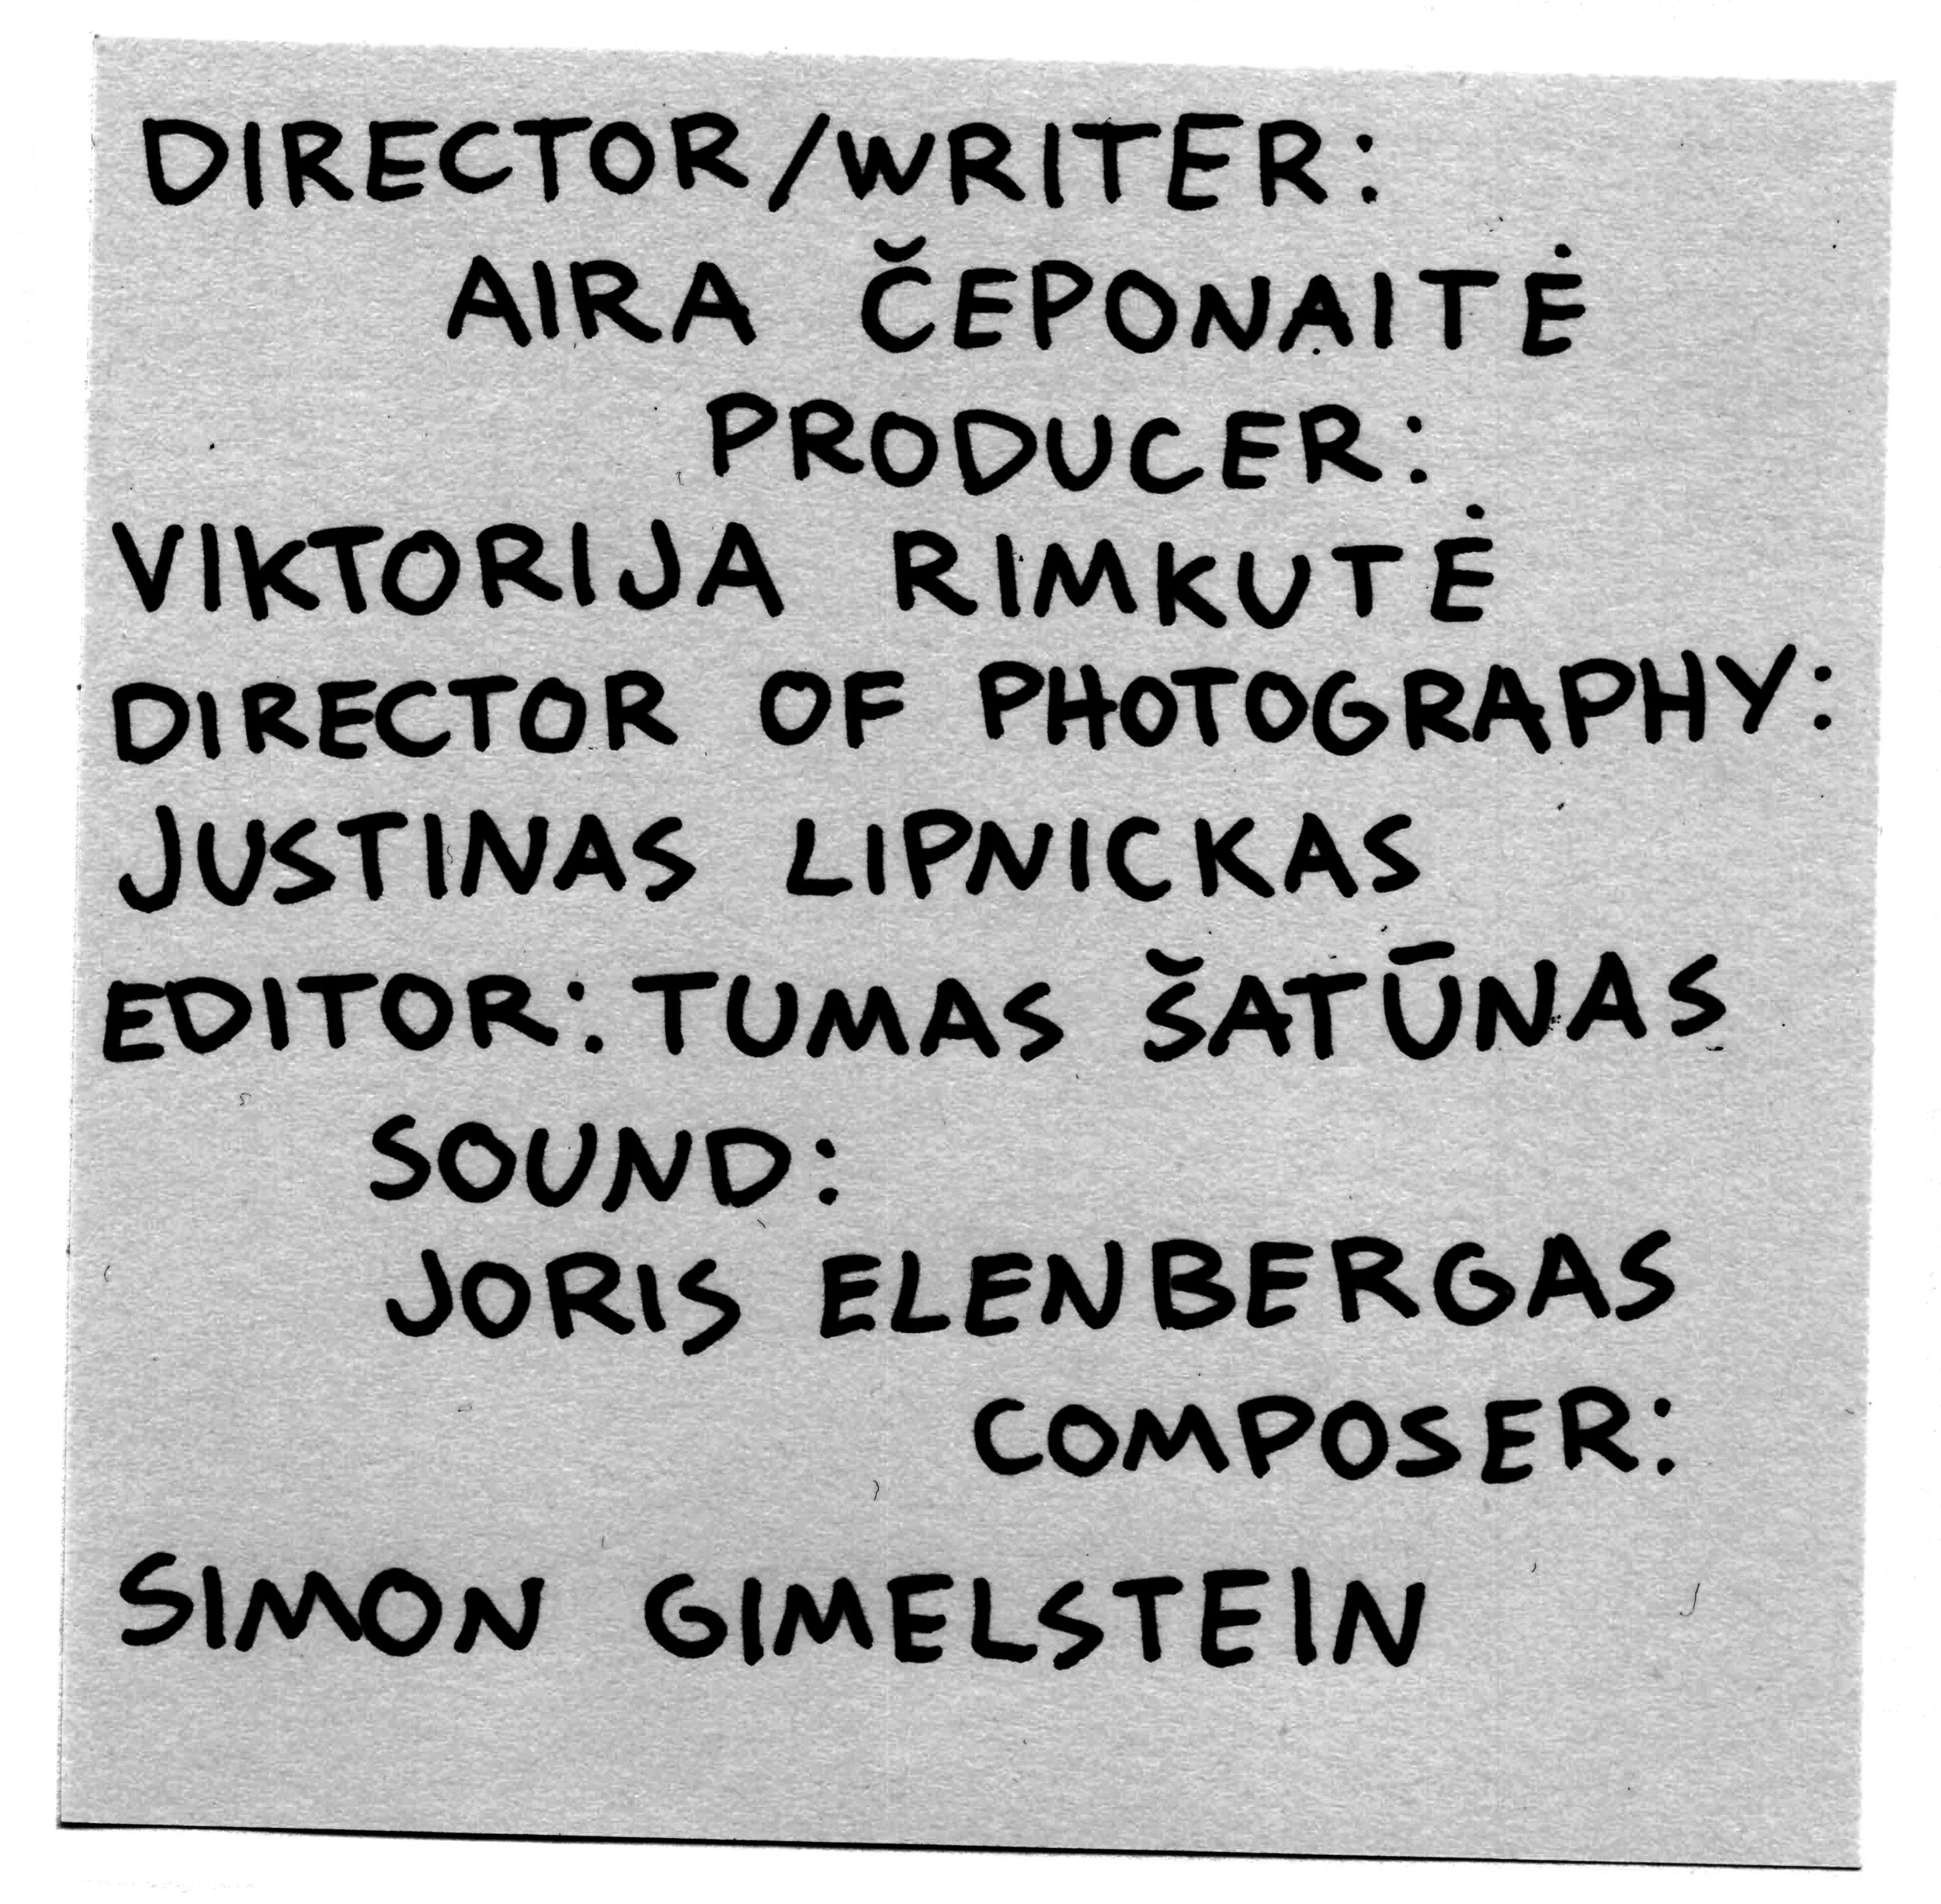 DIRECTOR/WRITER:
AIRA ČEPONAITĖ
PRODUCER:
VIKTORIJA RIMKUTĖ
DIRECTOR OF PHOTOGRAPHY:
JUSTINAS LIPNICKAS
EDITOR: TUMAS ŠATŪNAS
SOUND:
JORIS ELENBERGAS
COMPOSER:
SIMON GIMELSTEIN